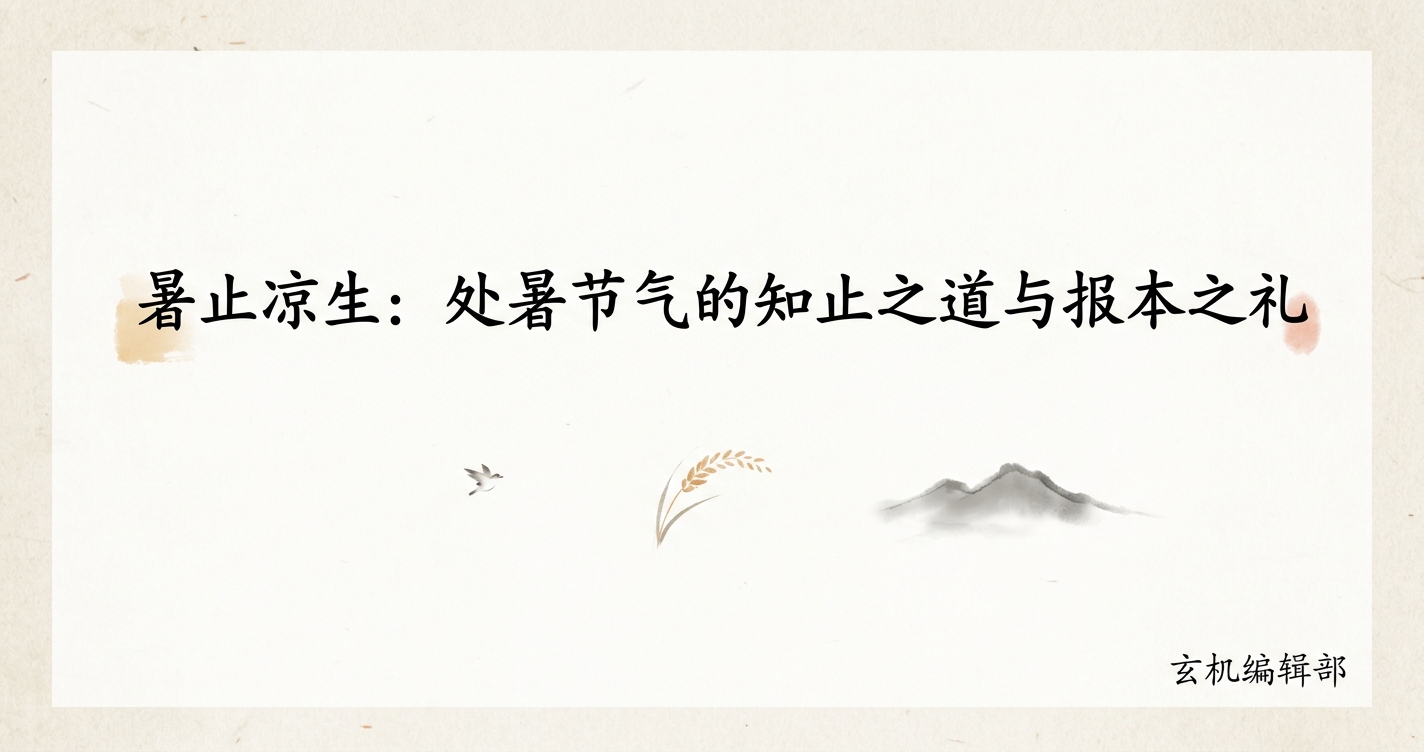 暑止凉生：处暑节气的知止之道与报本之礼
玄机编辑部